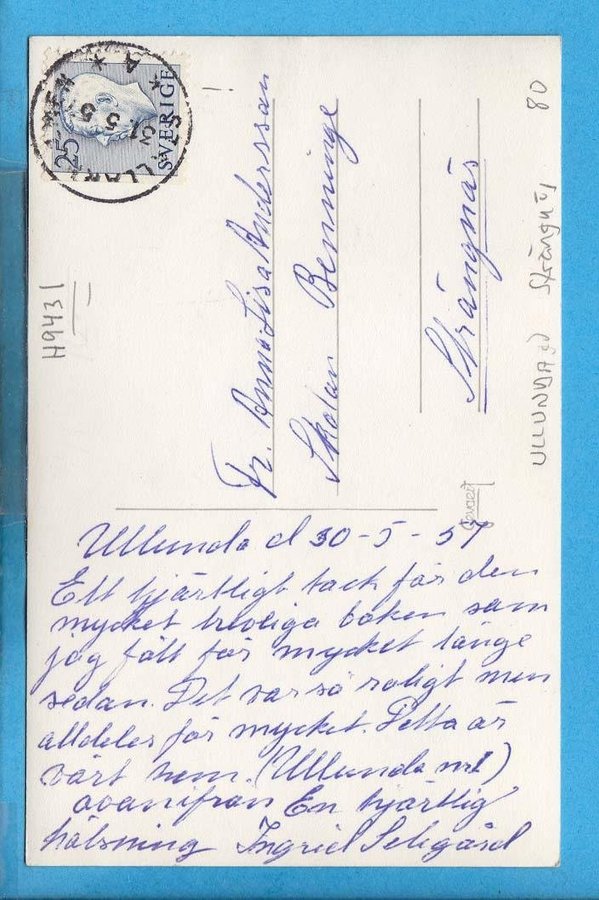 Ullunda d 30-5-57
Ett hjärtligt tack för den
mycket trevliga boken som
jag fått för mycket länge
sedan. Det var så roligt men
alldeles för mycket. Detta är
vårt hem. (Ullunda nr1)
ovanifrån En hjärtlig
hälsning Ingrid
Fr. Anna Lisa Andersson
Skolan Benninge
Strängnäs
SVERIGE
25
A
H9431
80
ULLUNDA gd Strängnäs
Gevaert